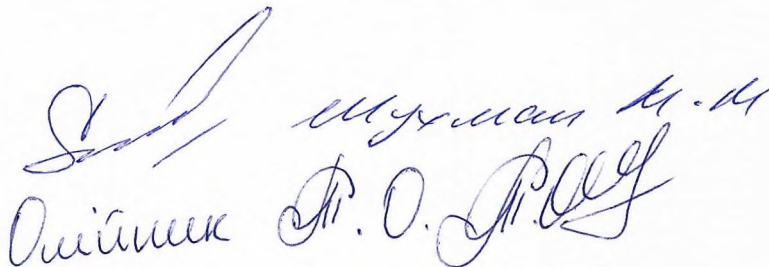 Шухман М.М
Олійник Т.О.